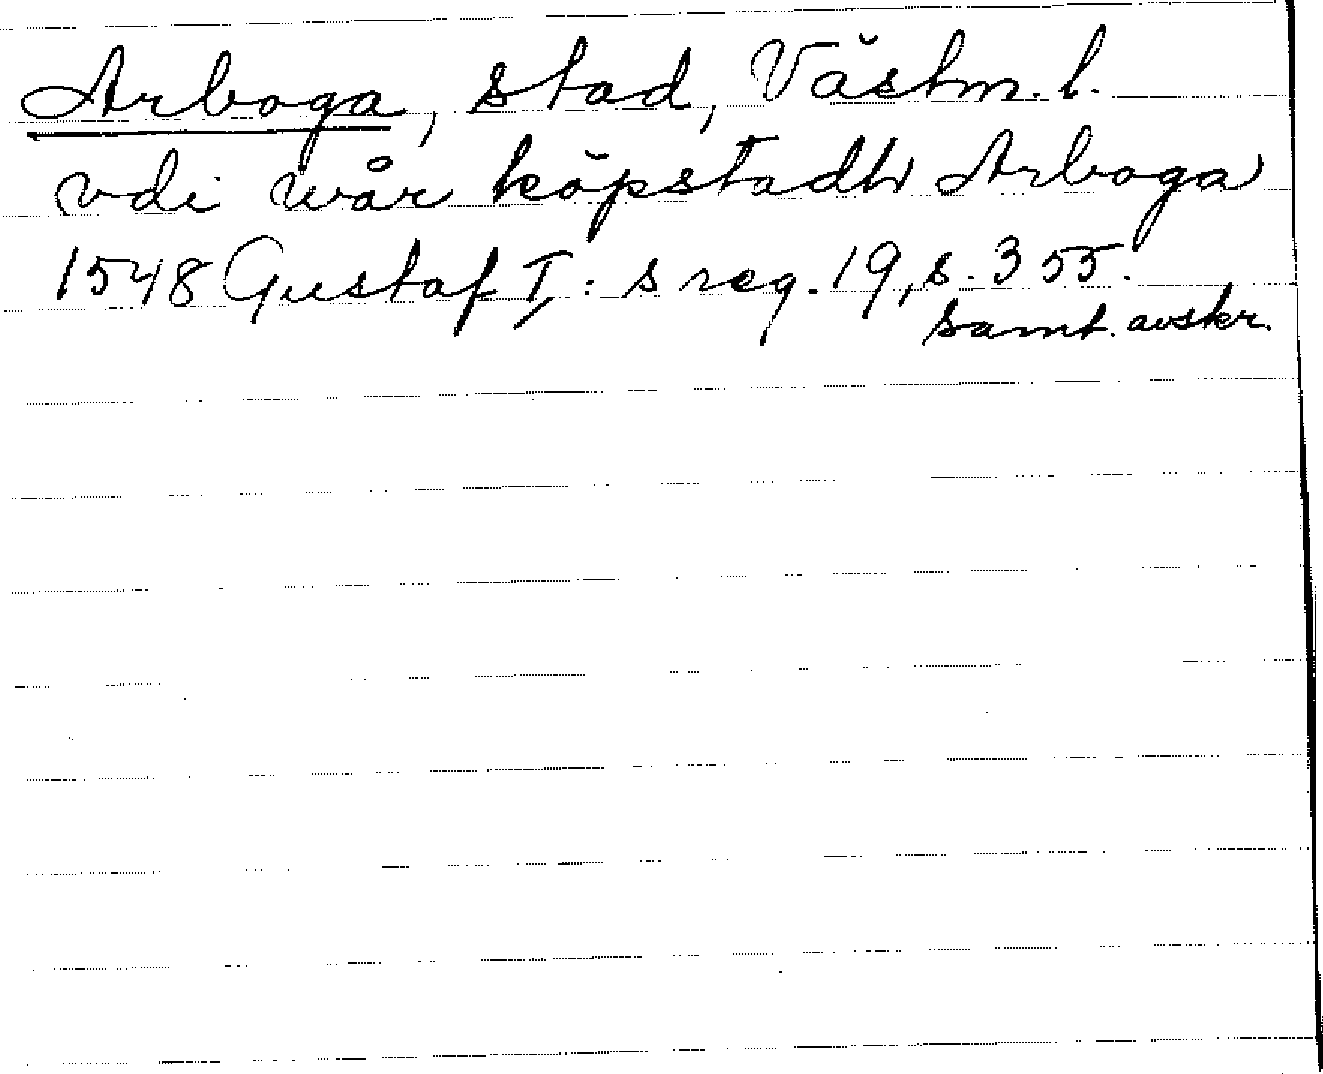 Arboga, stad, Västm. l.
vdi wår köpstadh Arboga
1548 Gustaf I:s reg. 19, s. 355.
samt. avskr.